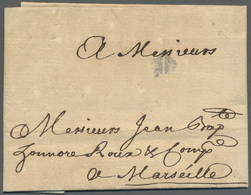 A Messieurs
Messieurs Jean Bap^te
honnore Roux & Comp^e
a Marseille